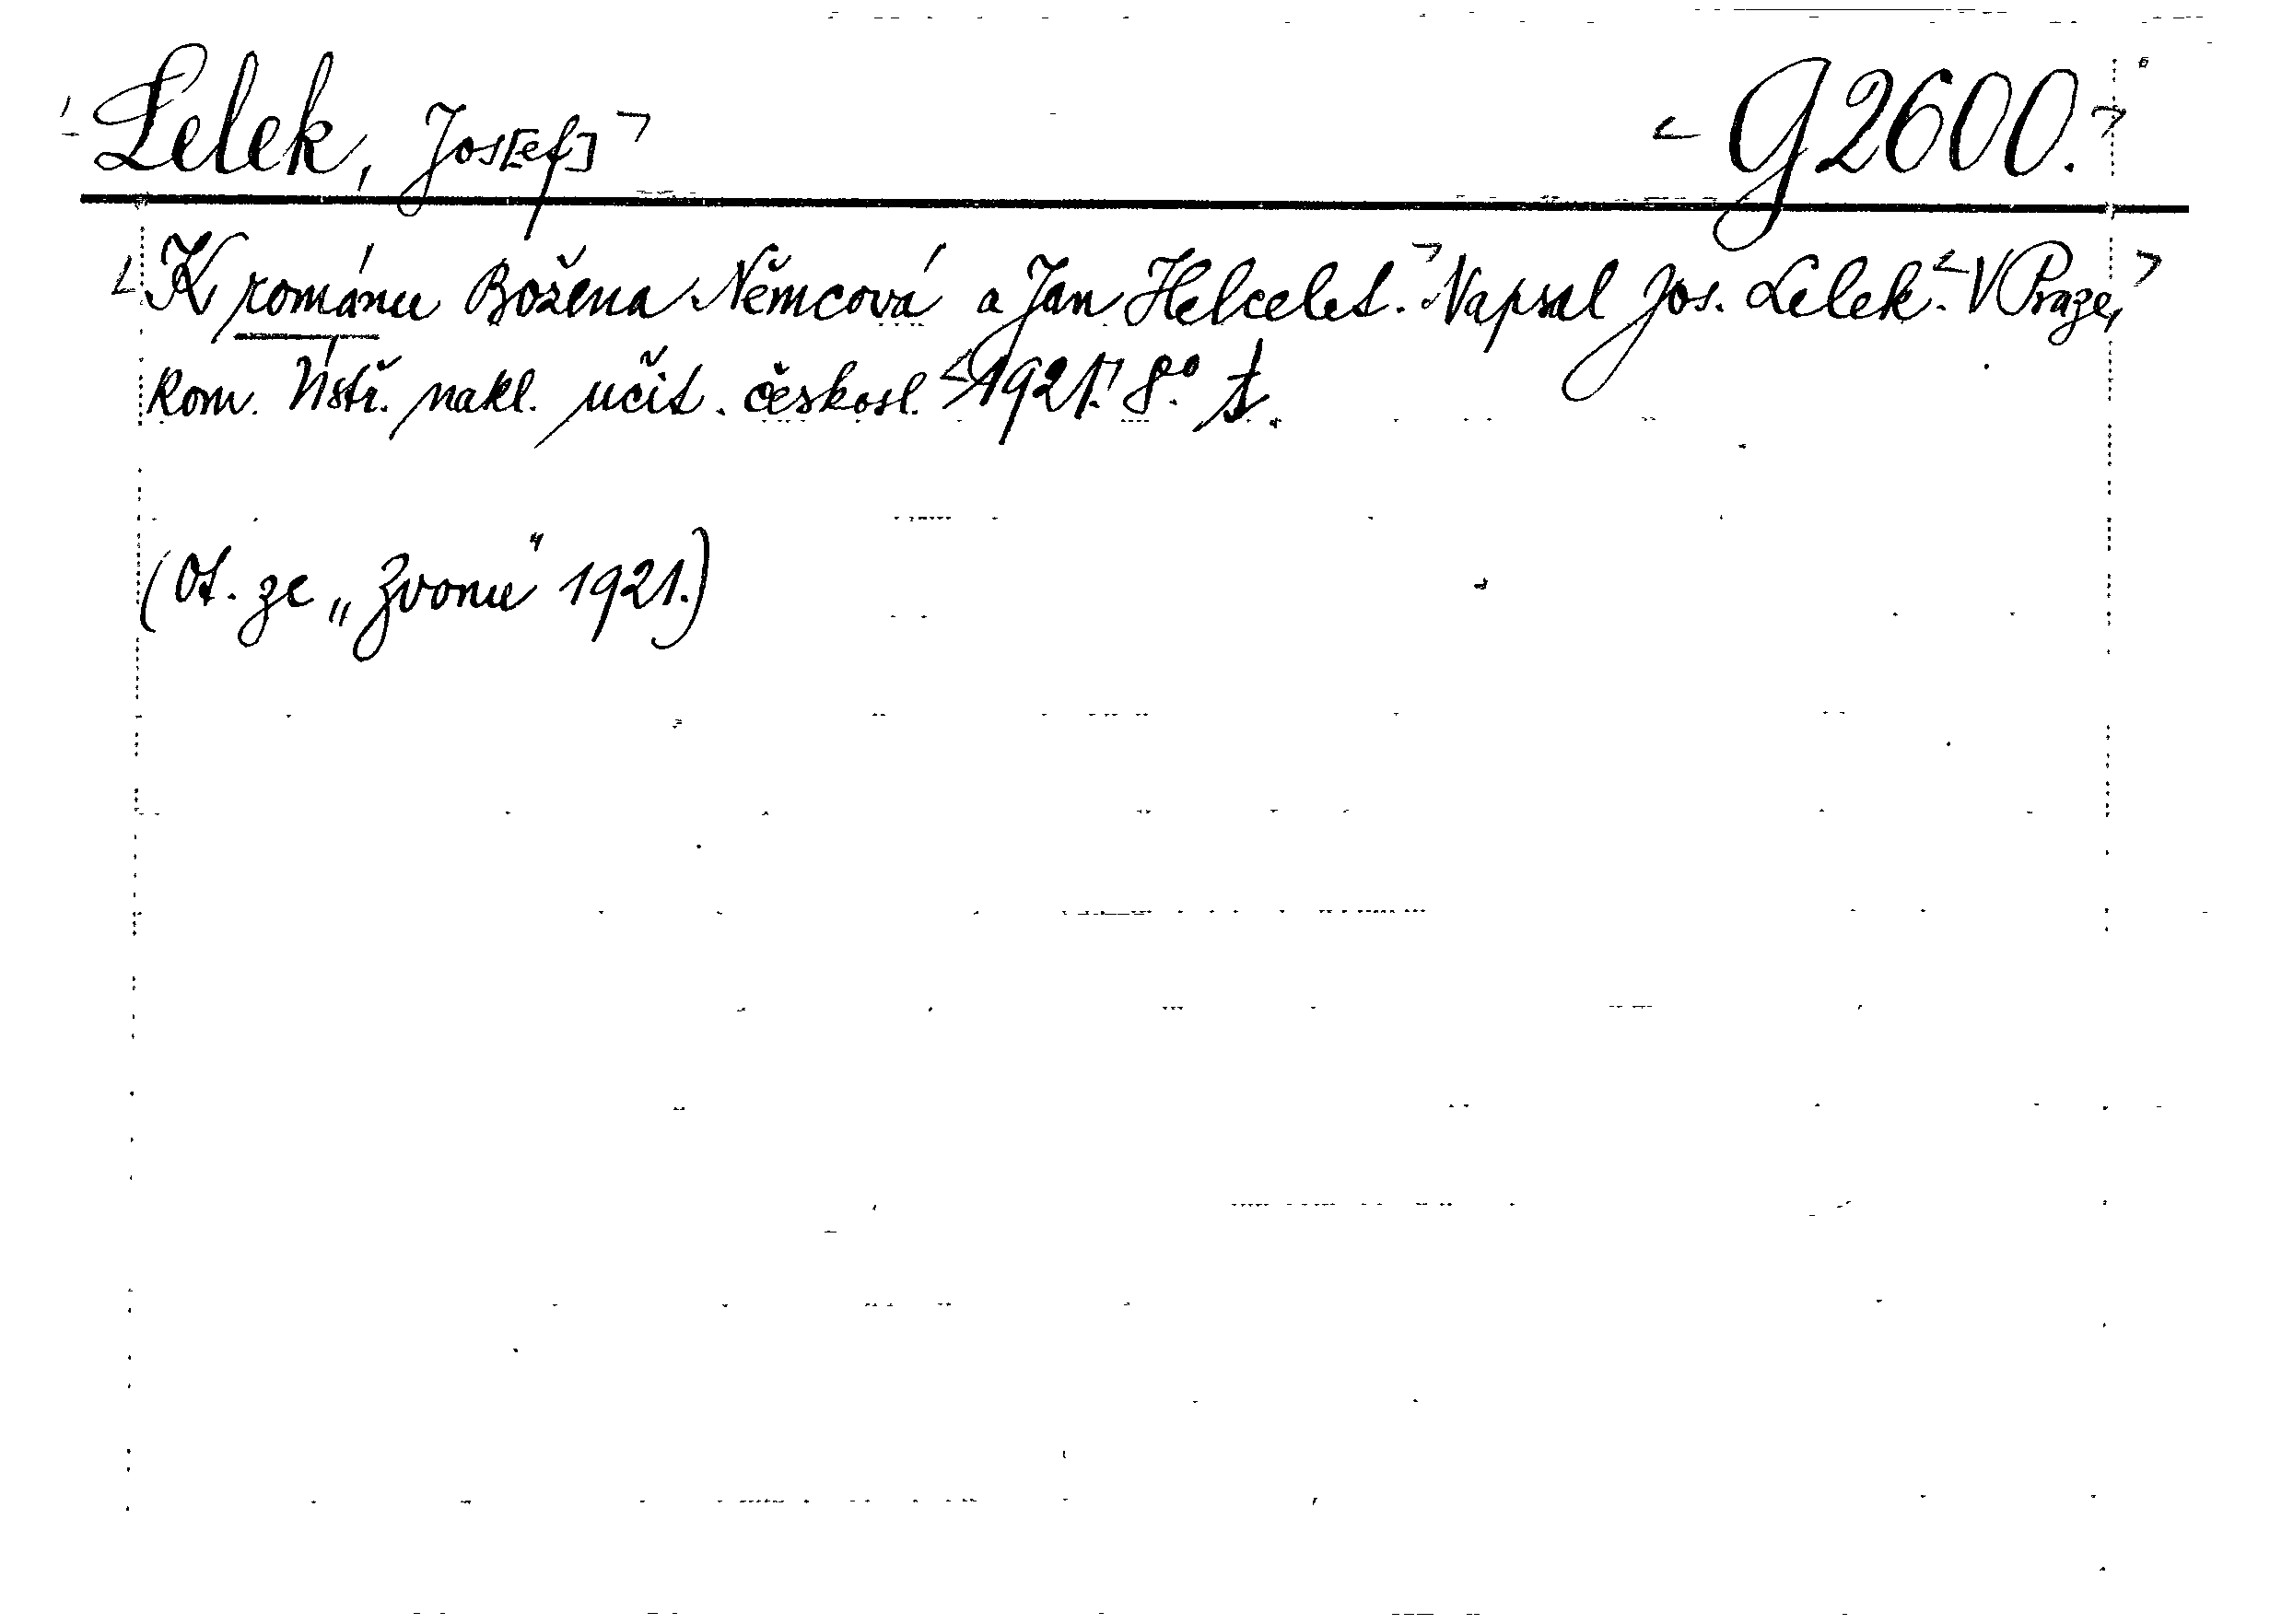 Lelek, Jos[ef] G 2600.
K románu Božena Němcová a Jan Helcelet. Napsal Jos. Lelek. V Praze,
Kom. Ústř. nakl. učit. českosl. 1921. 8.º
(Ot. ze „Zvonu“ 1921.)